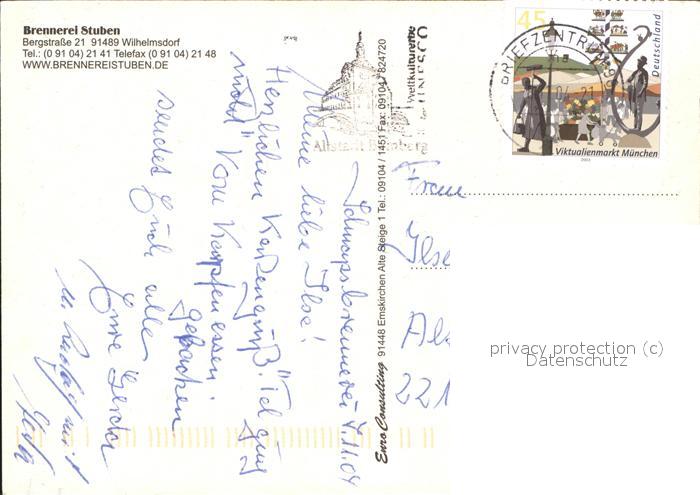 Brennerei Stuben
Bergstraße 21 91489 Wilhelmsdorf
Tel.: (0 91 04) 21 41 Telefax (0 91 04) 21 48
WWW.BRENNEREISTUBEN.DE
Schnapsbrennerei 4.11.04
Meine liebe Ilse!
Herzlichen Kartengruß
"Vom Karpfenessen
gebacken
sendet Euch alle
Eure Gerda
Euro Consulting 91448 Emskirchen Alte Steige 1 Tel.: 09104 / 1451 Fax: 09104 / 824720
Altstadt Bamberg
Weltkulturerbe
der UNESCO
BRIEFZENTRUM
45
Deutschland
Viktualienmarkt München
2003
Frau
Ilse
221
privacy protection (c)
Datenschutz